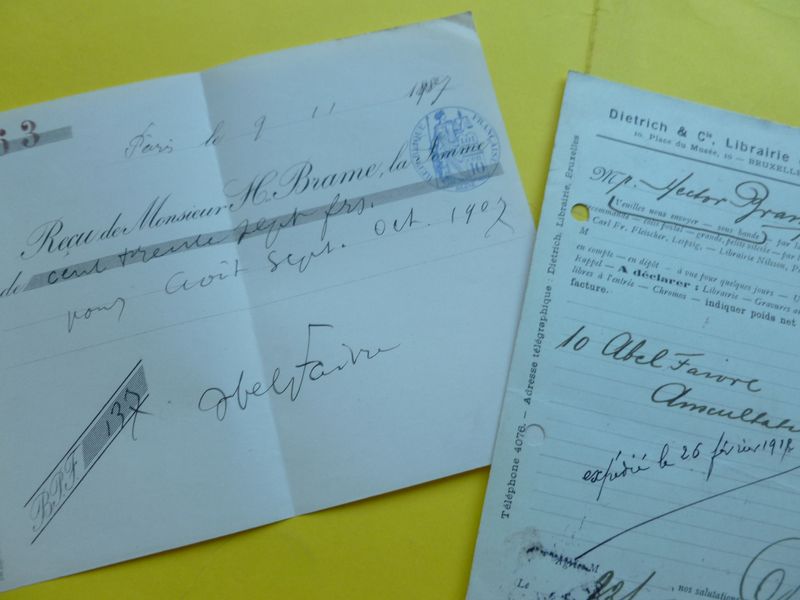 53
Paris le 9 11 1907
Reçu de Monsieur H. Brame, la Somme
de cent trente sept frs.
pour Août Sept. Oct. 1907
Abel Faivre
B.P.F. 137
RÉPUBLIQUE FRANÇAISE
10
Dietrich & Cie, Librairie
10, Place du Musée, 10 – BRUXELLES
Mr. Hector Brame
(Veuillez nous envoyer — sous bande) par
recommandé — colis postal — grande, petite vitesse — par
Carl Fr. Fleischer, Leipzig, — Librairie Nilsson, P
M
en compte — en dépôt — à vue pour quelques jours — U
Rappel — A déclarer : Librairie — Gravures
libres à l'entrée — Chromos — indiquer poids net
facture.
10 Abel Faivre
expédié le 26 février
M
Le
nos salutations
Téléphone 4076. — Adresse télégraphique : Dietrich, Librairie, Bruxelles